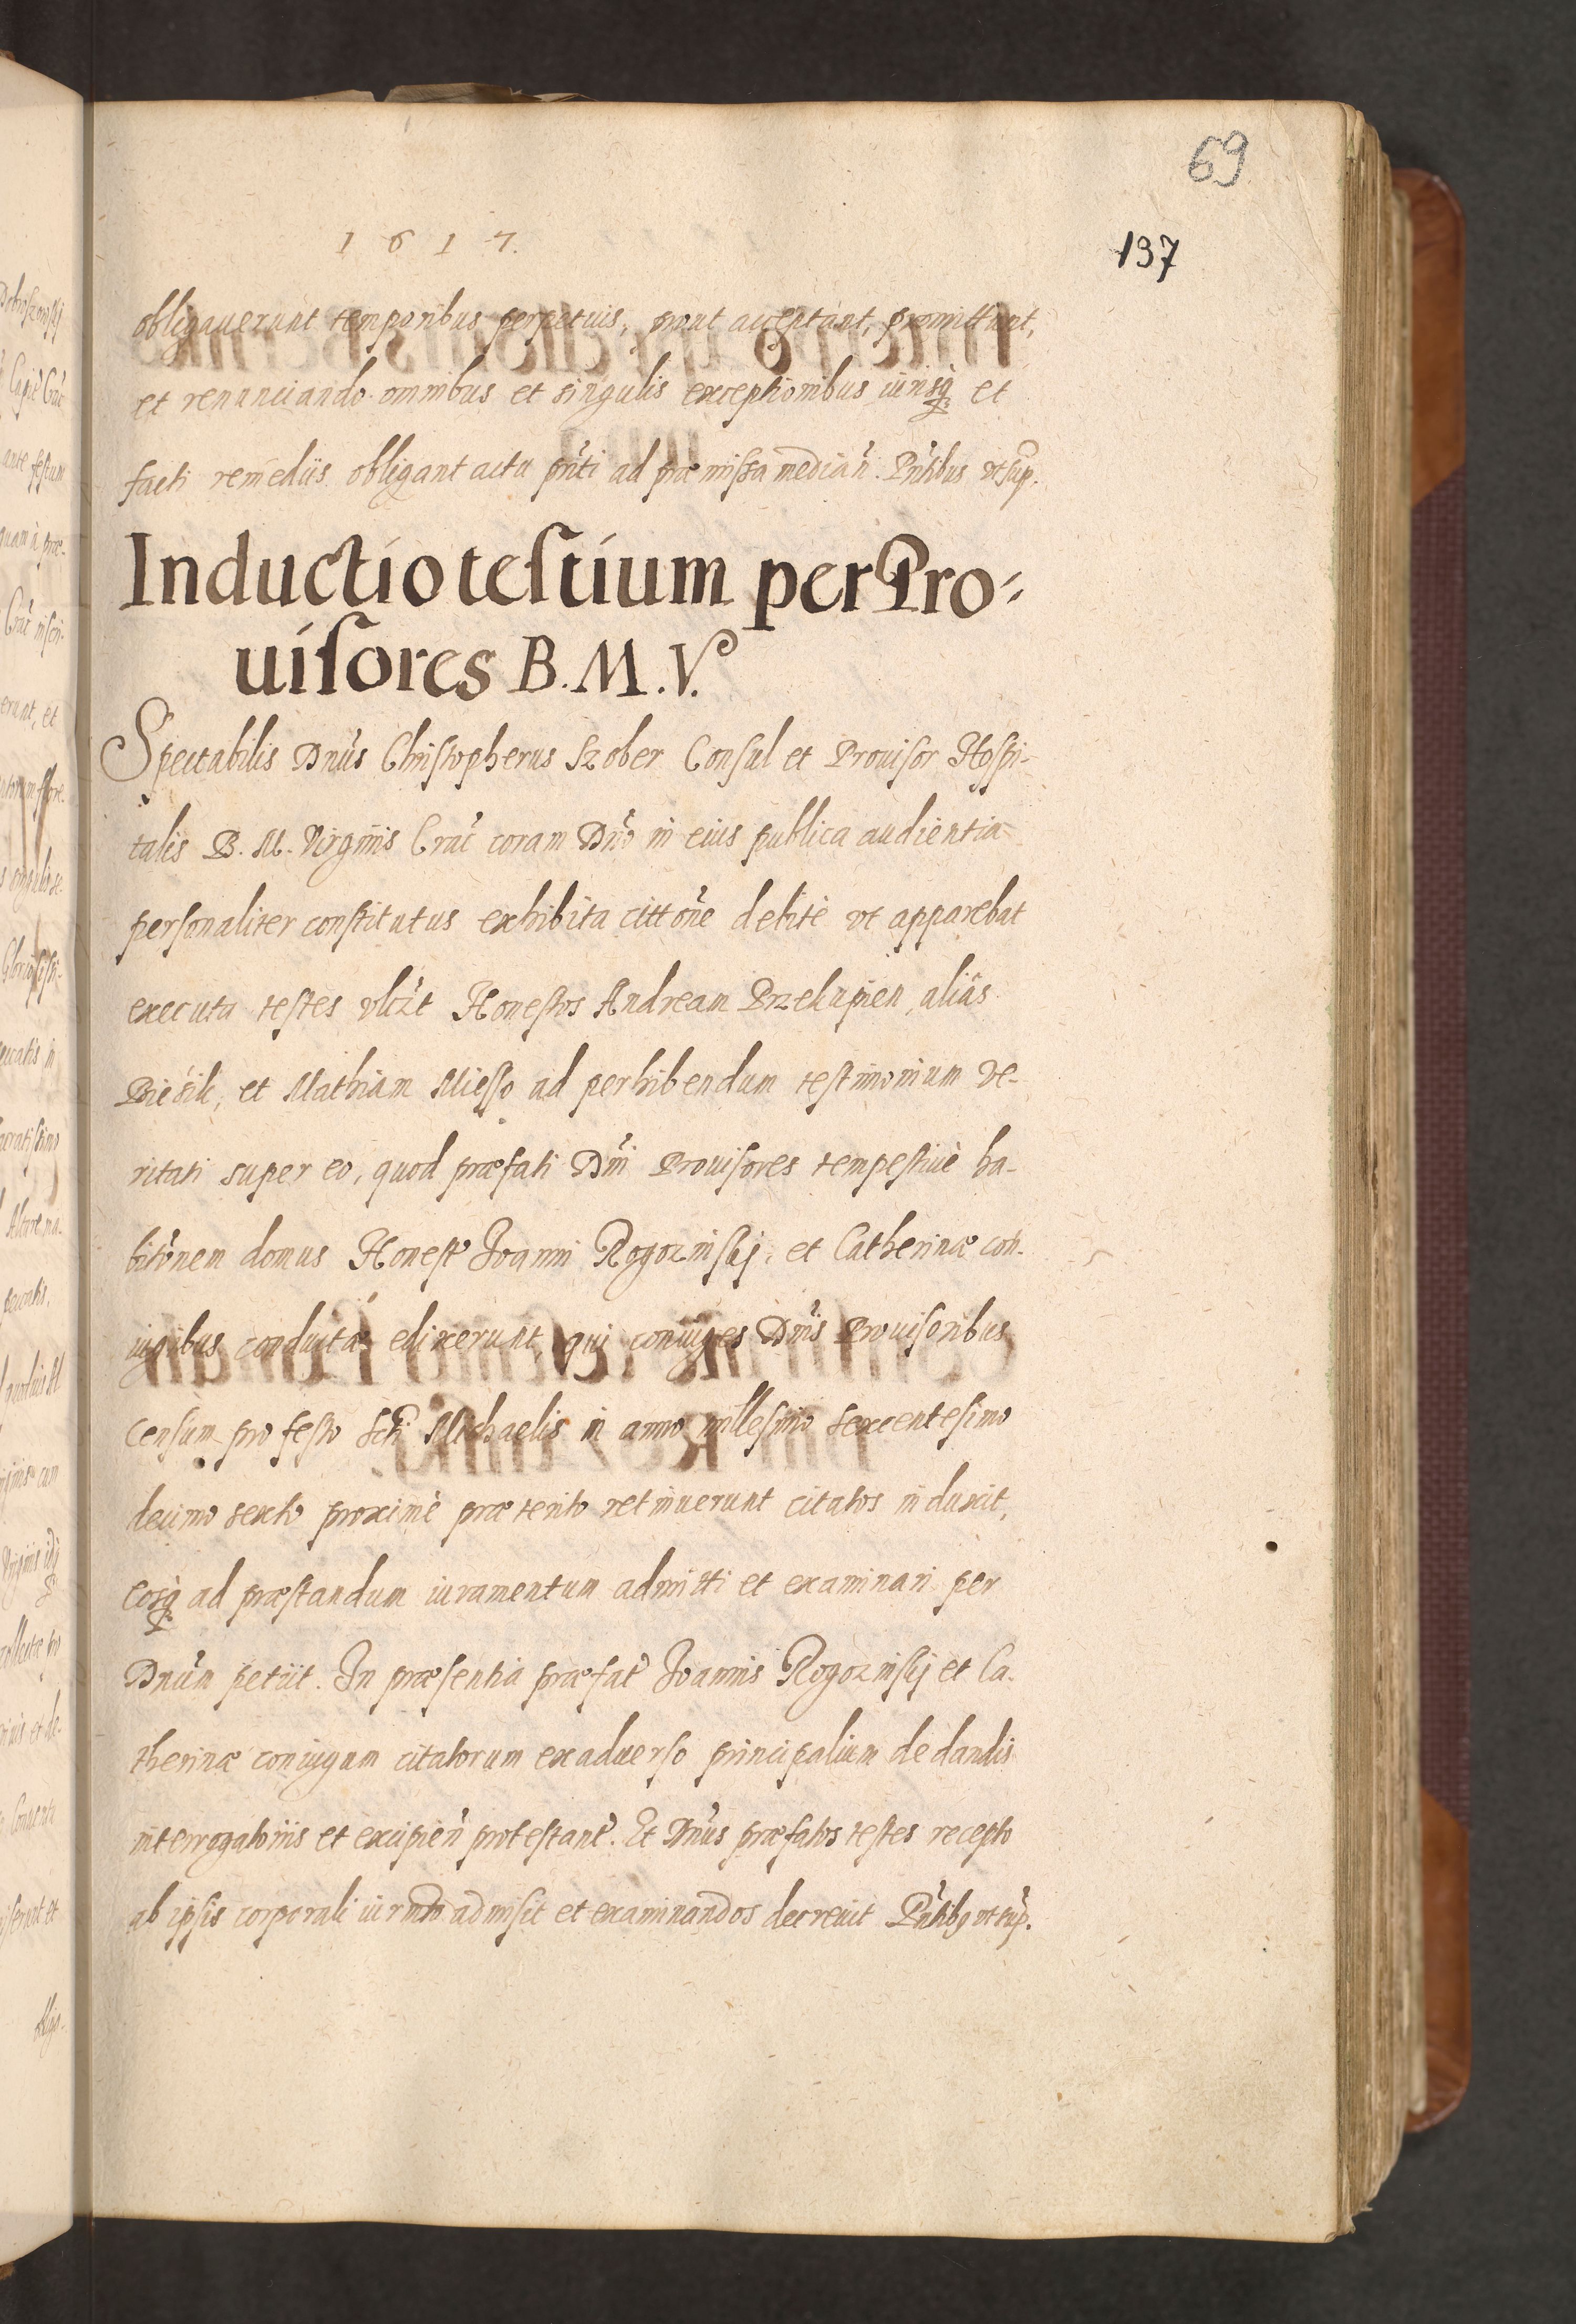 69
1617.
137
obligauerunt temporibus perpetuis, prout acceptant, promittunt,
et renunciando omnibus et singulis exceptionibus iurisq̃ et
facti remediis obligant acta pñti ad præmissa median̄. Pñtibus vt sup.
Inductio testium per Pro-
uisores B. M. V.
Spectabilis Dnus Christopherus Szober Consul et Prouisor Hospi-
talis B. M. Virginis Crac̃ coram Dño in eius publica audientia
personaliter constitutus exhibita cittõne debitè vt apparebat
executa testes vlt̃ Honestos Andream Przekupien, aliâs
et Mathiam Miesso ad perhibendum testimonium ve-
ritati super eo, quod præfati Dñi Prouisores tempestiuè ha-
bitõnem domus Honest̃ Joanni Rogoznisky, et Catherinæ con-
iugibus conductæ edixerunt, qui coniuges Dñis Prouisoribus
censum pro festo Scti Michaelis in anno millesimo sexcentesimo
decimo sexto proximè præterito retinuerunt citatos induxit,
eosq̃ ad præstandum iuramentum admitti et examinari per
Dnum petiit. In præsentia præfat̃ Joannis Rogoznisky et Ca-
therinæ coniugum citatorum ex aduerso principalium de dandis
interrogatoriis et excipien̄ protestant̃. Et Dnus præfatos testes recepto
ab ipsis corporali iurmto admisit et examinandos decreuit Pñtibq vt sup.